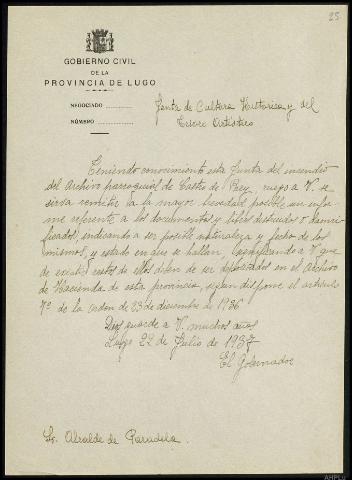 25
GOBIERNO CIVIL
DE LA
PROVINCIA DE LUGO
NEGOCIADO
NÚMERO
Junta de Cultura Historica y del
Tesoro Artístico
Teniendo conocimiento esta Junta del incendio
del Archivo parroquial de Castro de Rey, ruego a V. se
sirva remitir a la mayor brevedad posible un infor-
me referente a los documentos y libros destruidos o damni-
ficados, indicando a ser posible naturaleza y fecha de los
mismos, y estado en que se hallan, significando a V. que
de existir restos de ellos deben de ser depositados en el Archivo
de Hacienda de esta provincia, segun dispone el articulo
7º de la orden de 23 de diciembre de 1936
Dios guarde a V. muchos años
Lugo 22 de Julio de 1937
El Gobernador
Sr. Alcalde de Paradela.
AHPLU